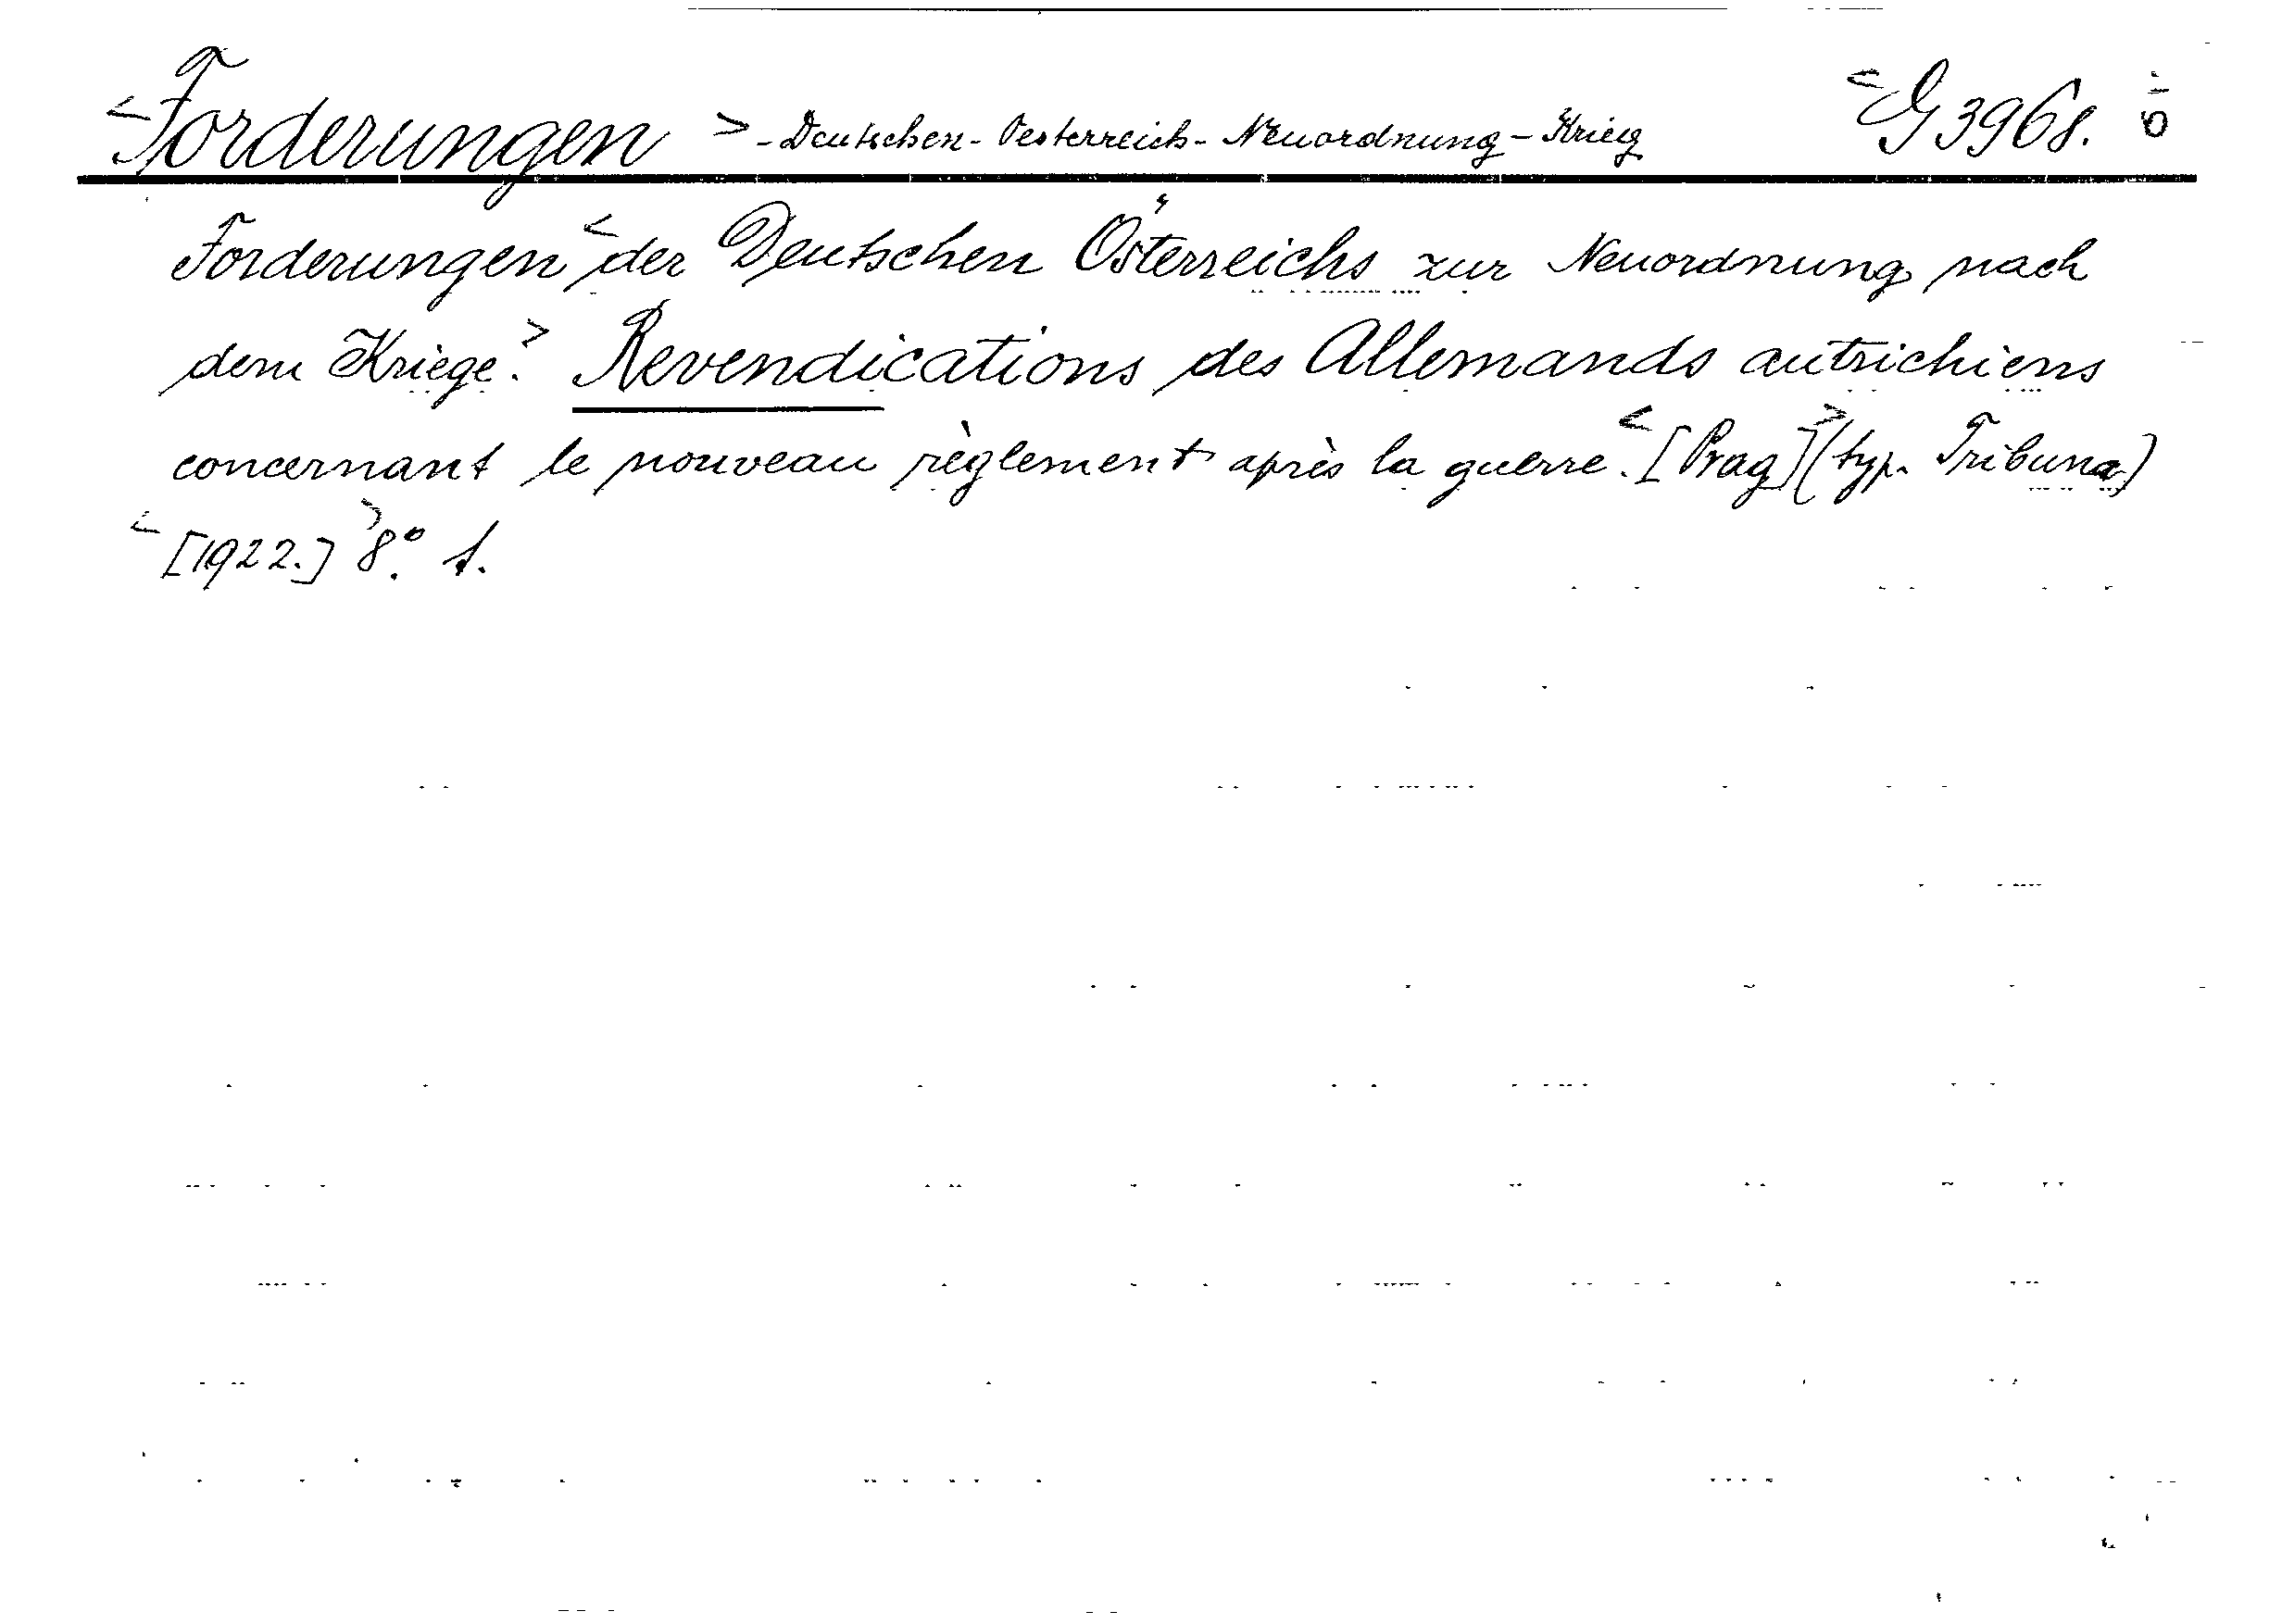 <Forderungen> - Deutschen - Oesterreich - Neuordnung - Krieg <G 3968.
Forderungen <der Deutschen Österreichs zur Neuordnung nach
dem Kriege.> Revendications des Allemands autrichiens
concernant le nouveau règlement après la guerre. <[Prag]> (typ. Tribuna)
<[1922.]> 8°. f.